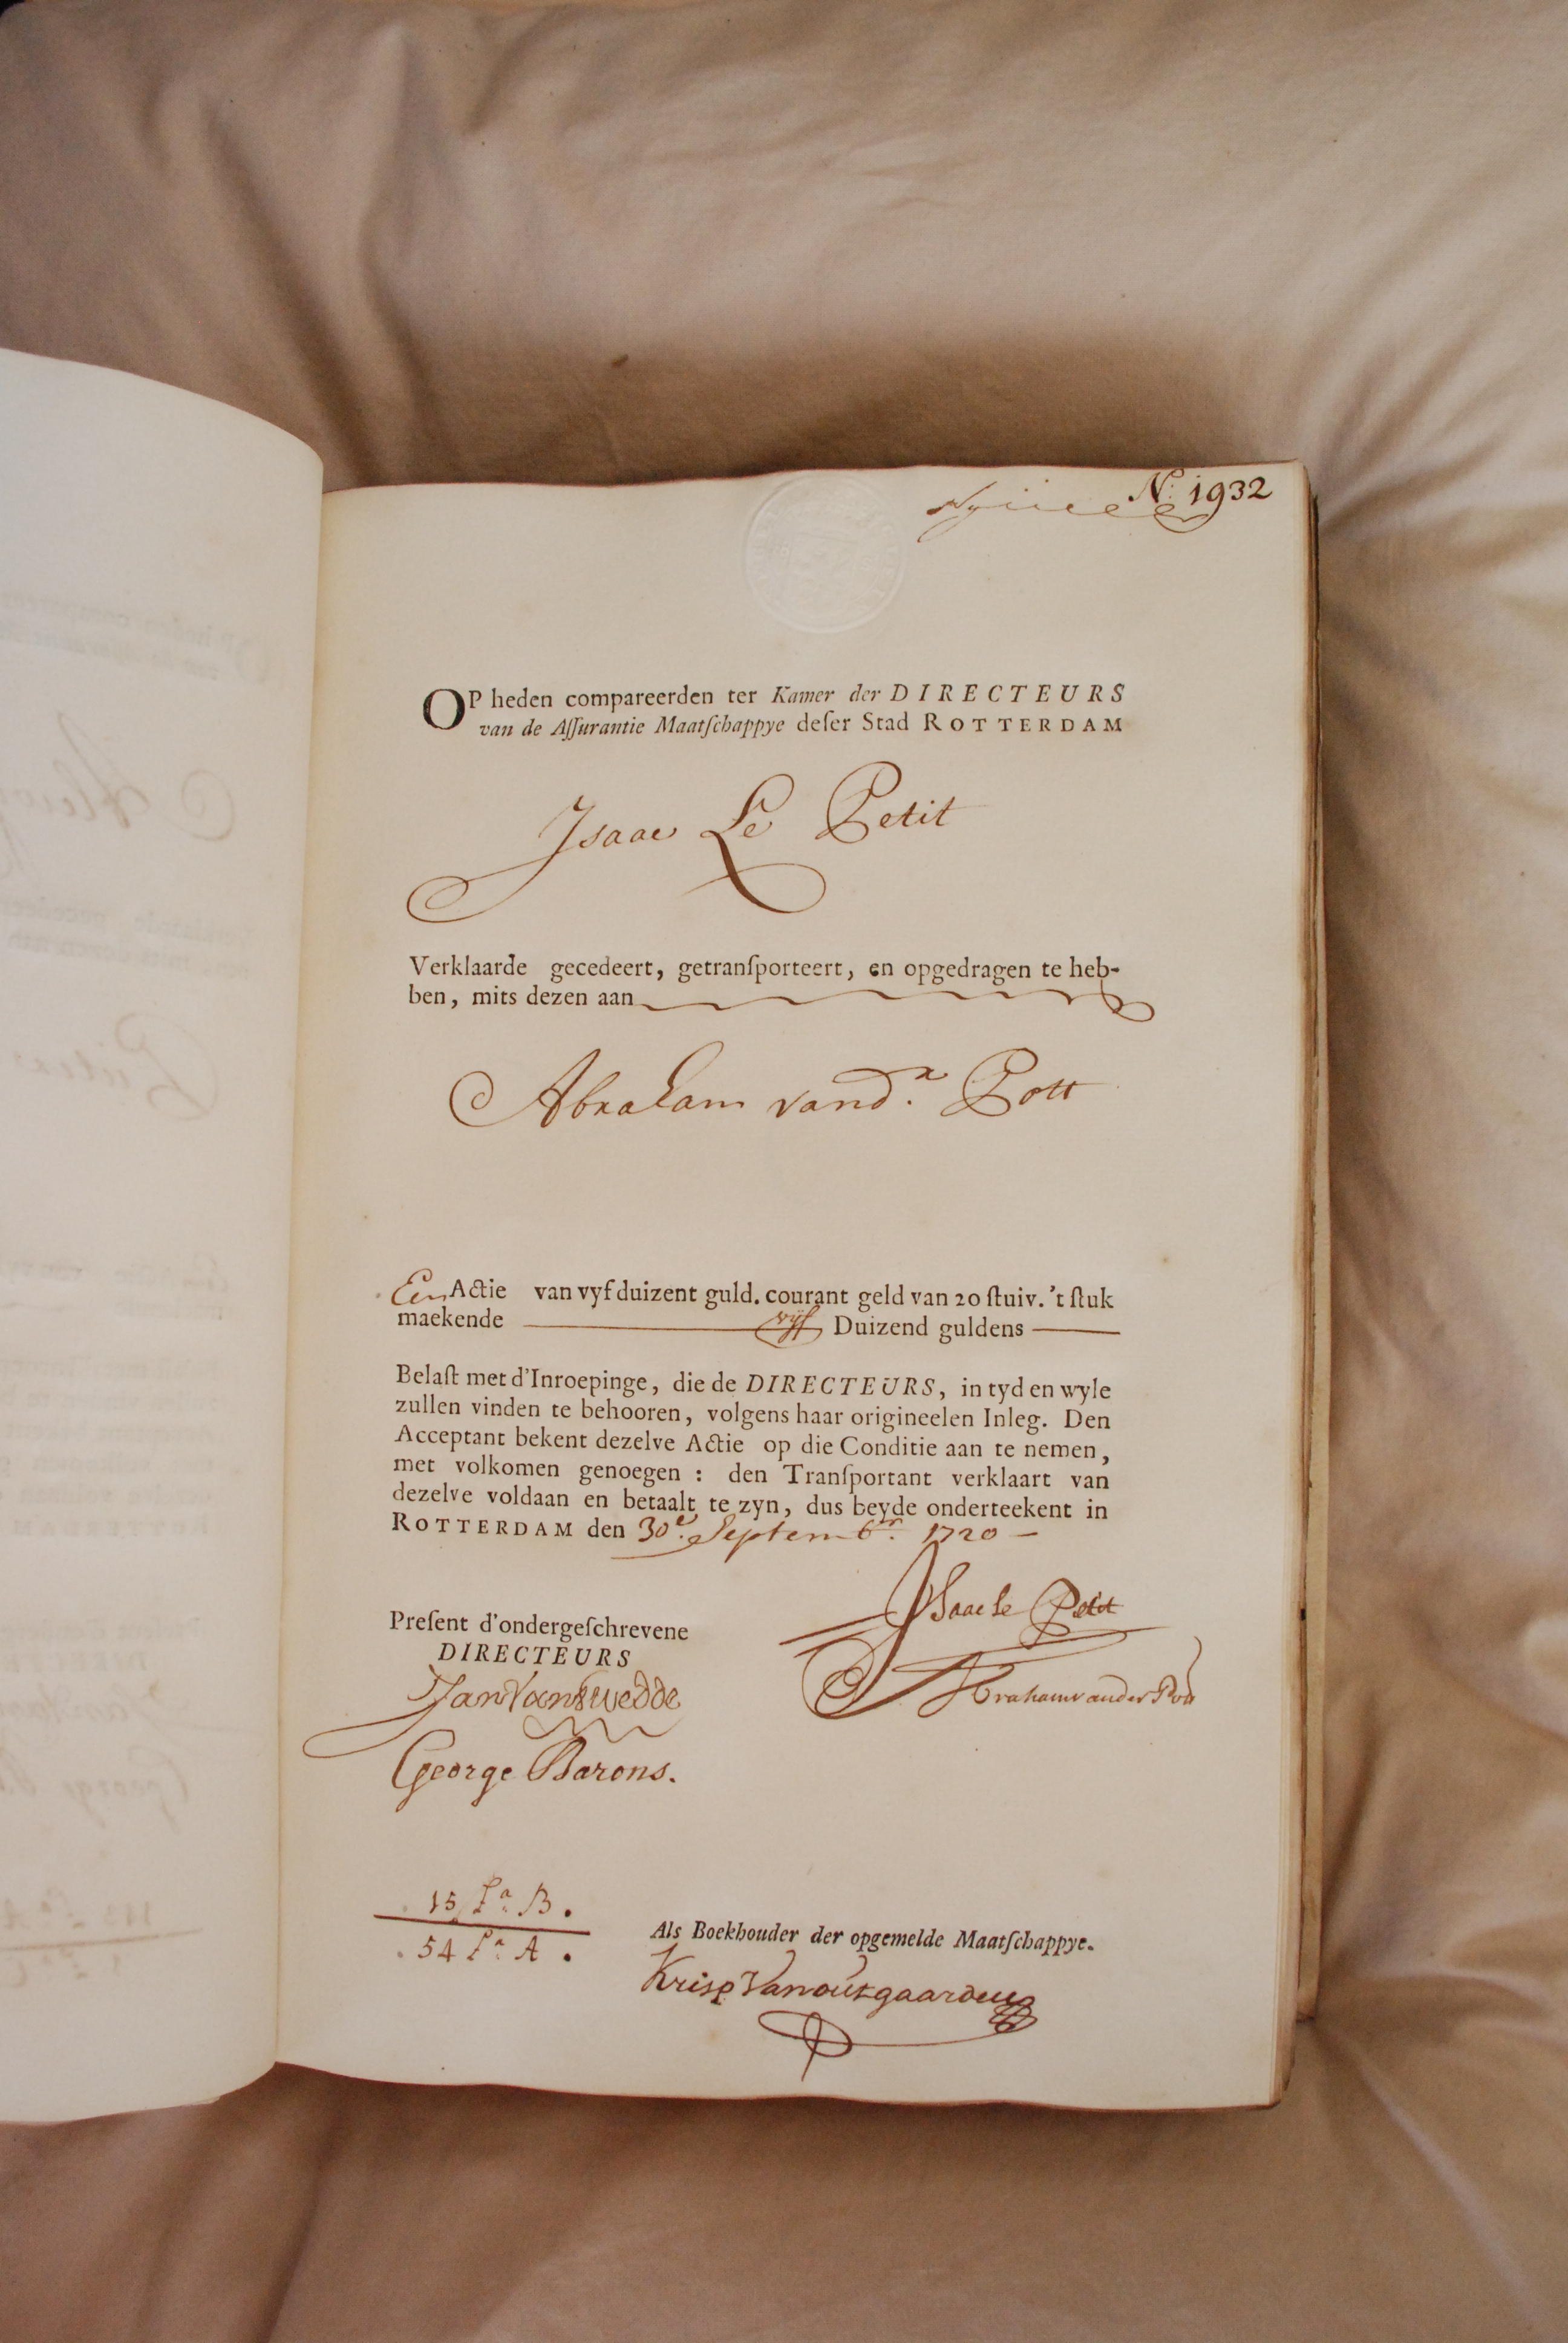 N: 1932
OP heden compareerden ter Kamer der DIRECTEURS
van de Aſſurantie Maatſchappye deſer Stad ROTTERDAM
Isaac Le Petit
Verklaarde gecedeert, getranſporteert, en opgedragen te heb-
ben, mits dezen aan
Abraham vandr. Pott
Een Actie van vyf duizent guld. courant geld van 20 ſtuiv. 't ſtuk
maekende vijf Duizend guldens
Belaſt met d'Inroepinge, die de DIRECTEURS, in tyd en wyle
zullen vinden te behooren, volgens haar origineelen Inleg. Den
Acceptant bekent dezelve Actie op die Conditie aan te nemen,
met volkomen genoegen : den Tranſportant verklaart van
dezelve voldaan en betaalt te zyn, dus beyde onderteekent in
ROTTERDAM den 30e. Septembr. 1720 —
Isaac le Petit
Abraham vander Pott
Preſent d'ondergeſchrevene
DIRECTEURS
Jan Van
George Barons.
15 La B.
54 La A.
Als Boekhouder der opgemelde Maatſchappye.
Krisp Vanoutgaarden